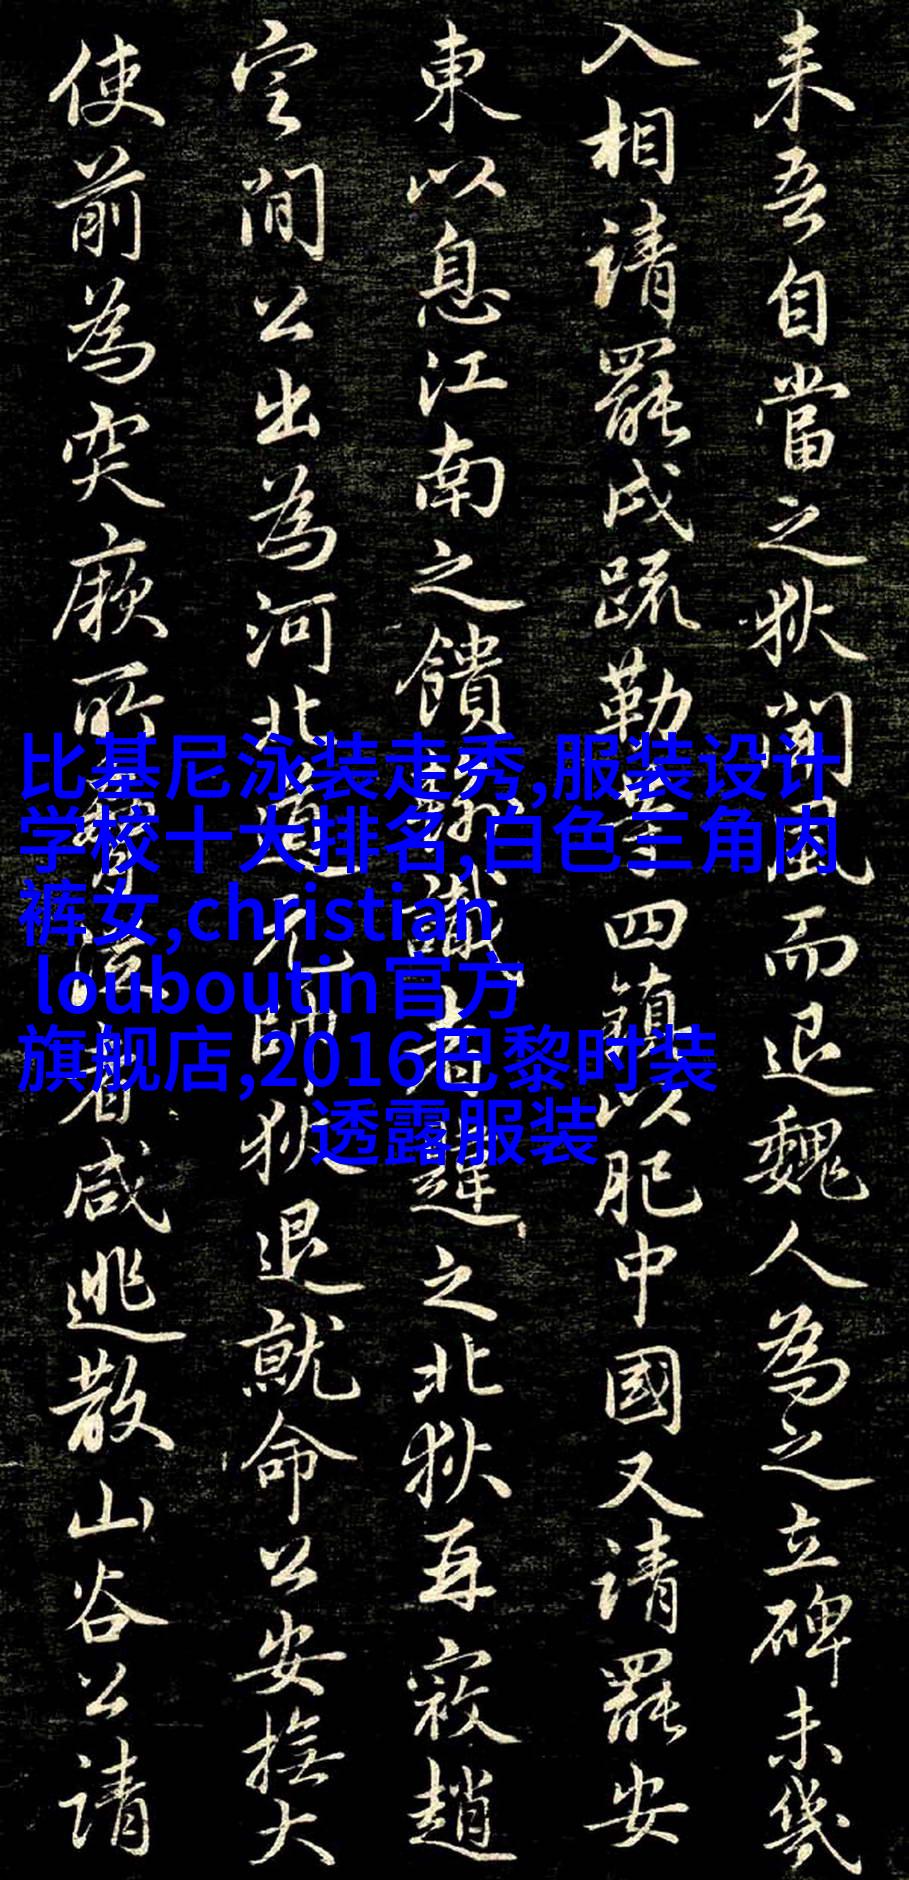 来吾自當之狄聞風而退魏人為之立碑未幾
入相請罷戍疏勒等四鎮以肥中國又請罷安
東以息江南之饋輸識者韙之北狄再寇趙
定間公出為河北道元帥狄退就命公安撫大
使前為突厥所脅從者咸逃散山谷公請
比基尼泳装走秀,服装设计
学校十大排名,白色三角内
裤女,christian
louboutin官方
旗舰店,2016巴黎时装
透露服装